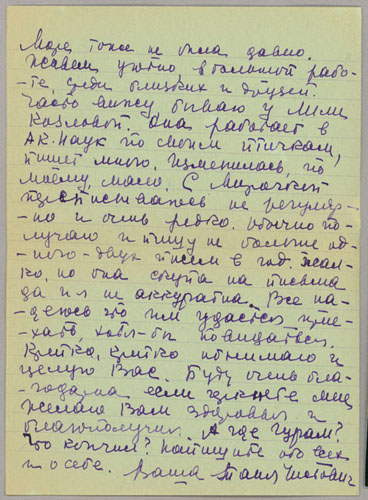 тоже не была давно.
Живем уютно в большой рабо-
-те, среди близких и друзей.
Часто вижу бываю у Лили
Козловой. Она работает в
Ак. Наук по своим птичкам,
пишет много. Изменилась, по
моему, мало. С Мирочкой
переписываюсь не регуляр-
-но и очень редко. Обычно по-
лучаю и пишу не больше од-
-ного-двух писем в год. Жал-
ко, но она скупа на письма
да и я не аккуратна. Все на-
-деюсь что им удастся прие-
-хать, хотя-бы повидаться.
Крепко, крепко обнимаю и
целую Вас. Буду очень бла-
-годарна если черкнете мне
желаю Вам здоровья и
благополучия. А где Гурам?
Что кончил? Напишите обо всех
и о себе. Ваша Таня